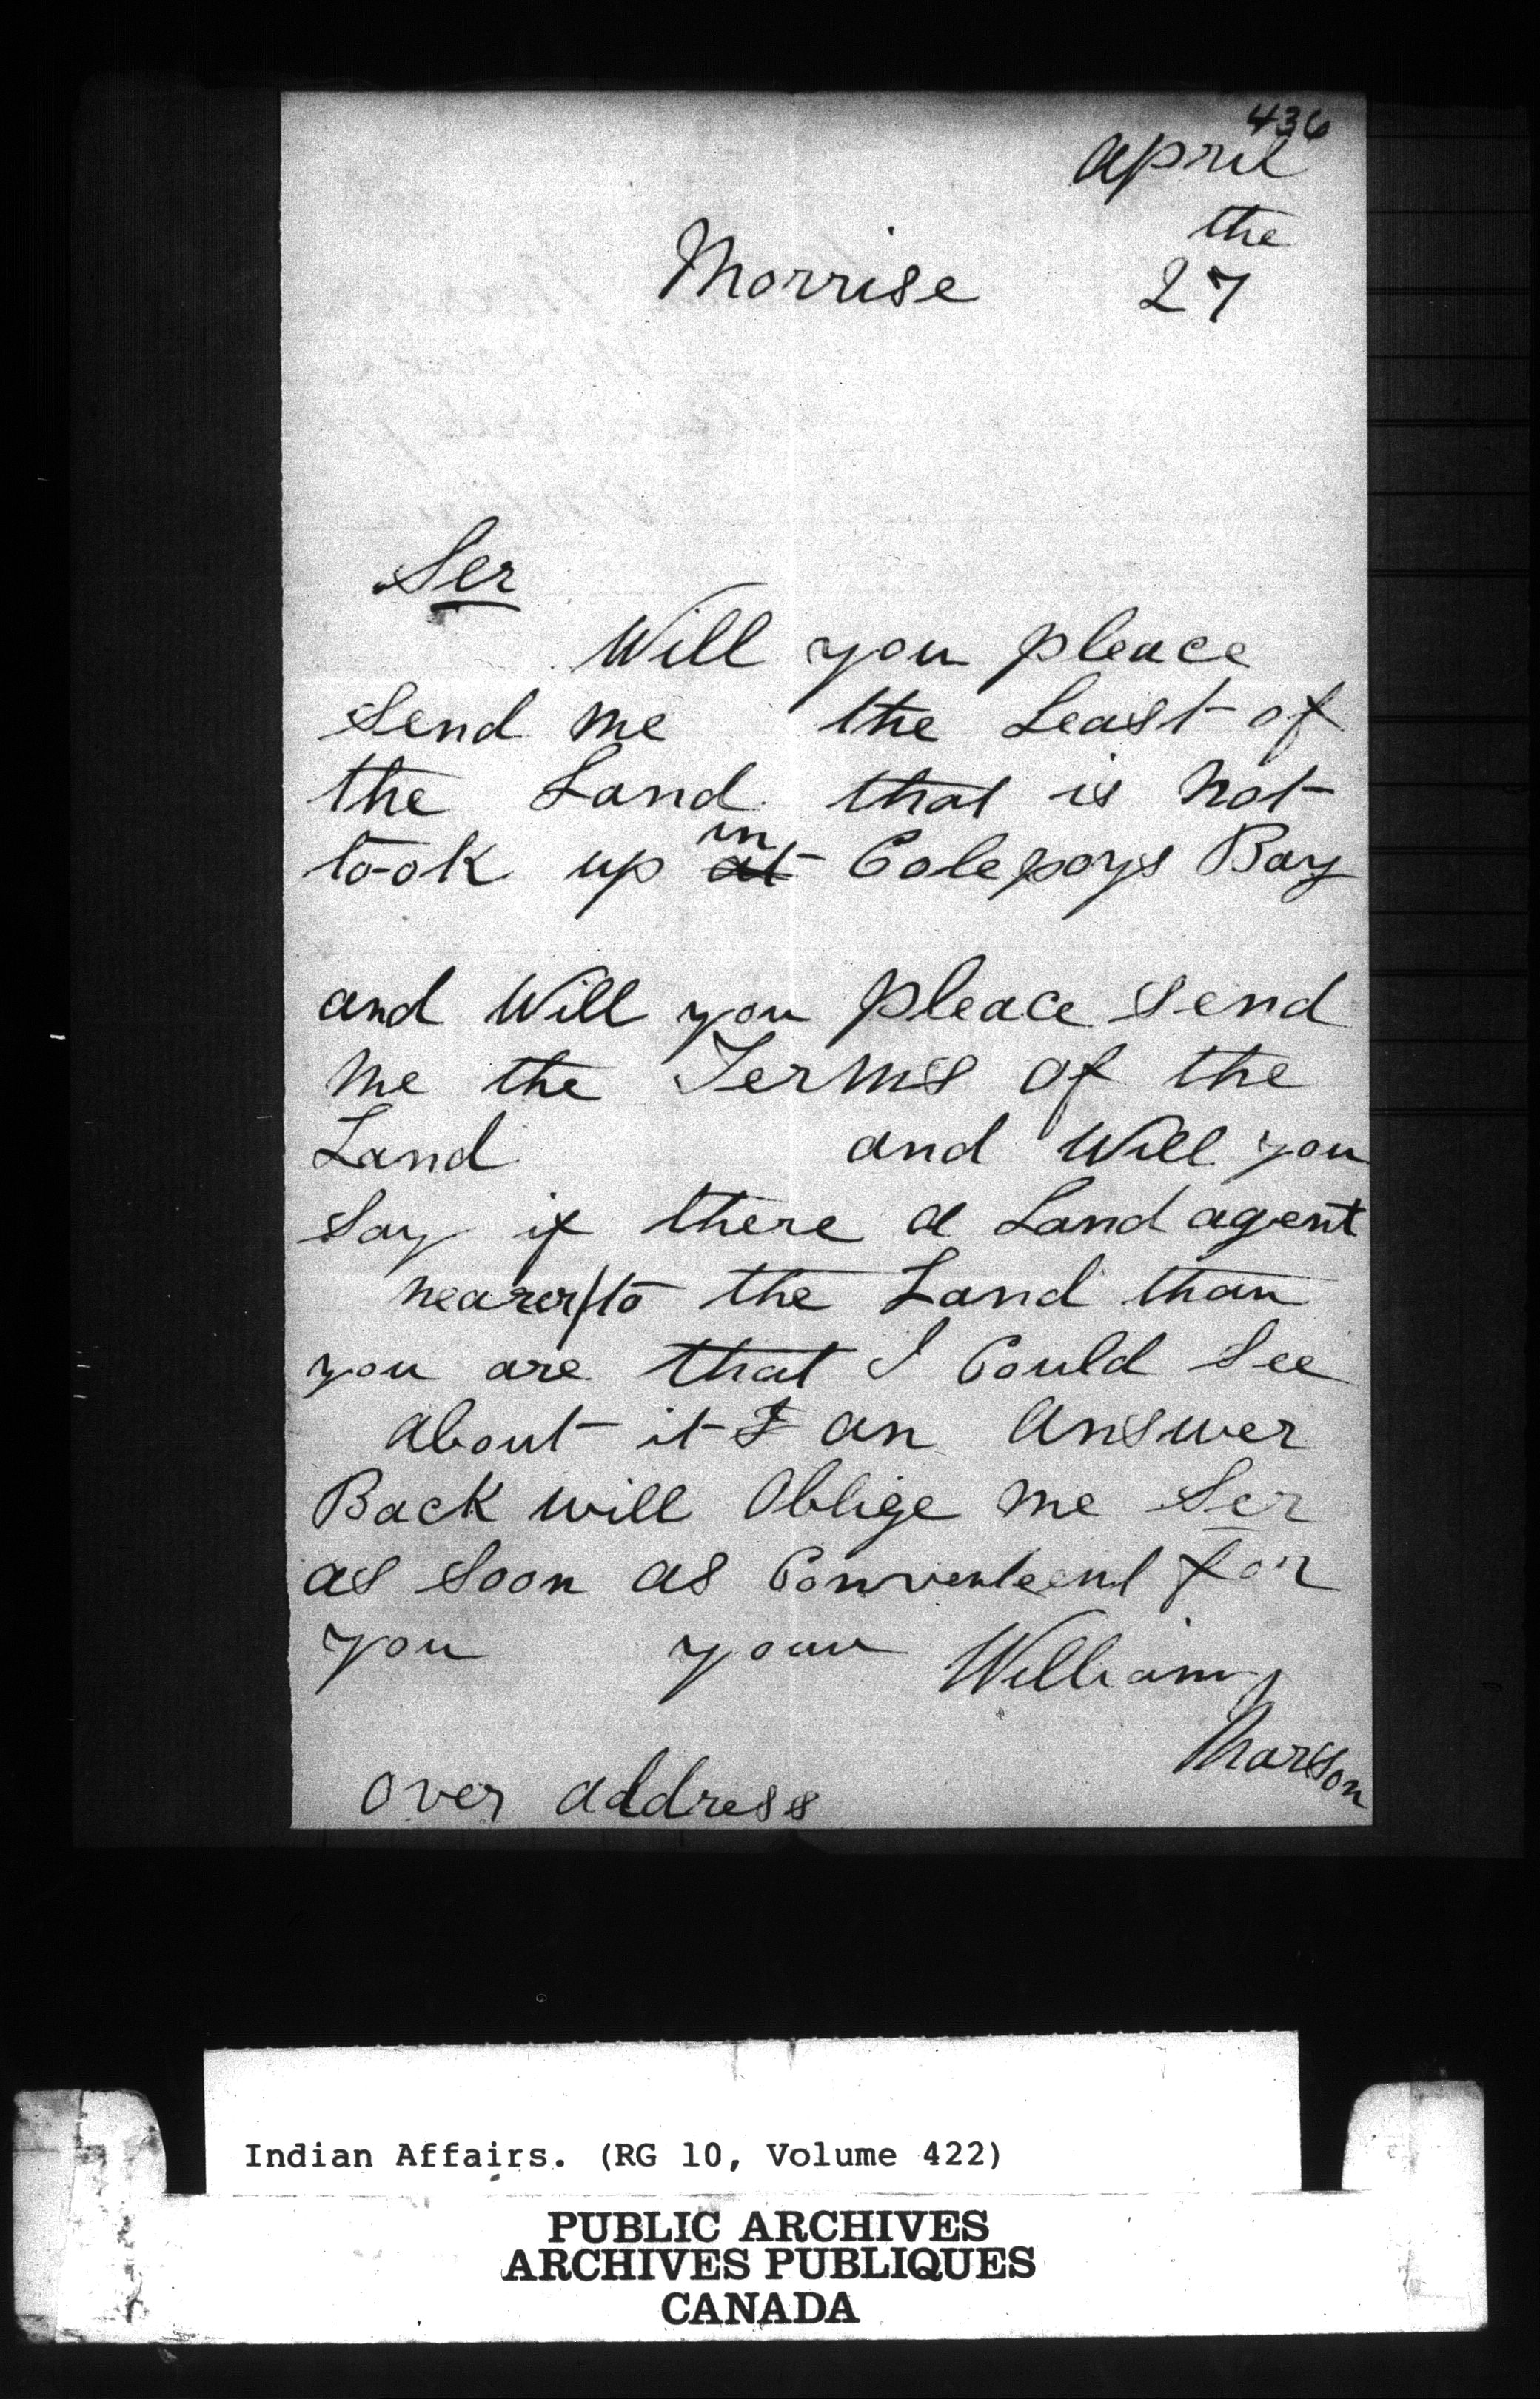 436
April
the
Morrise 27
Ser
Will you pleace
Send me the Least of
the Land that is not
took up in at Colepoys Bay
and Will you pleace send
me the Terms of the
Land and Will you
Say if there a Land agent
nearer/to the Land than
you are that I Could See
about it I an answer
Back will Oblige me Ser
as Soon as Conventeent for
you your William
Marson
over address
Indian Affairs. (RG 10, Volume 422)
PUBLIC ARCHIVES
ARCHIVES PUBLIQUES
CANADA